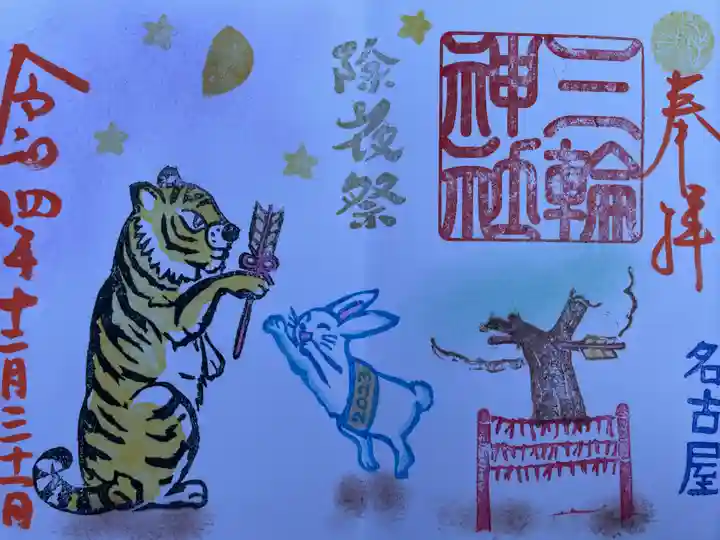 奉拝
名古屋
三輪
神社
除夜祭
2023
令和四年十二月三十一日